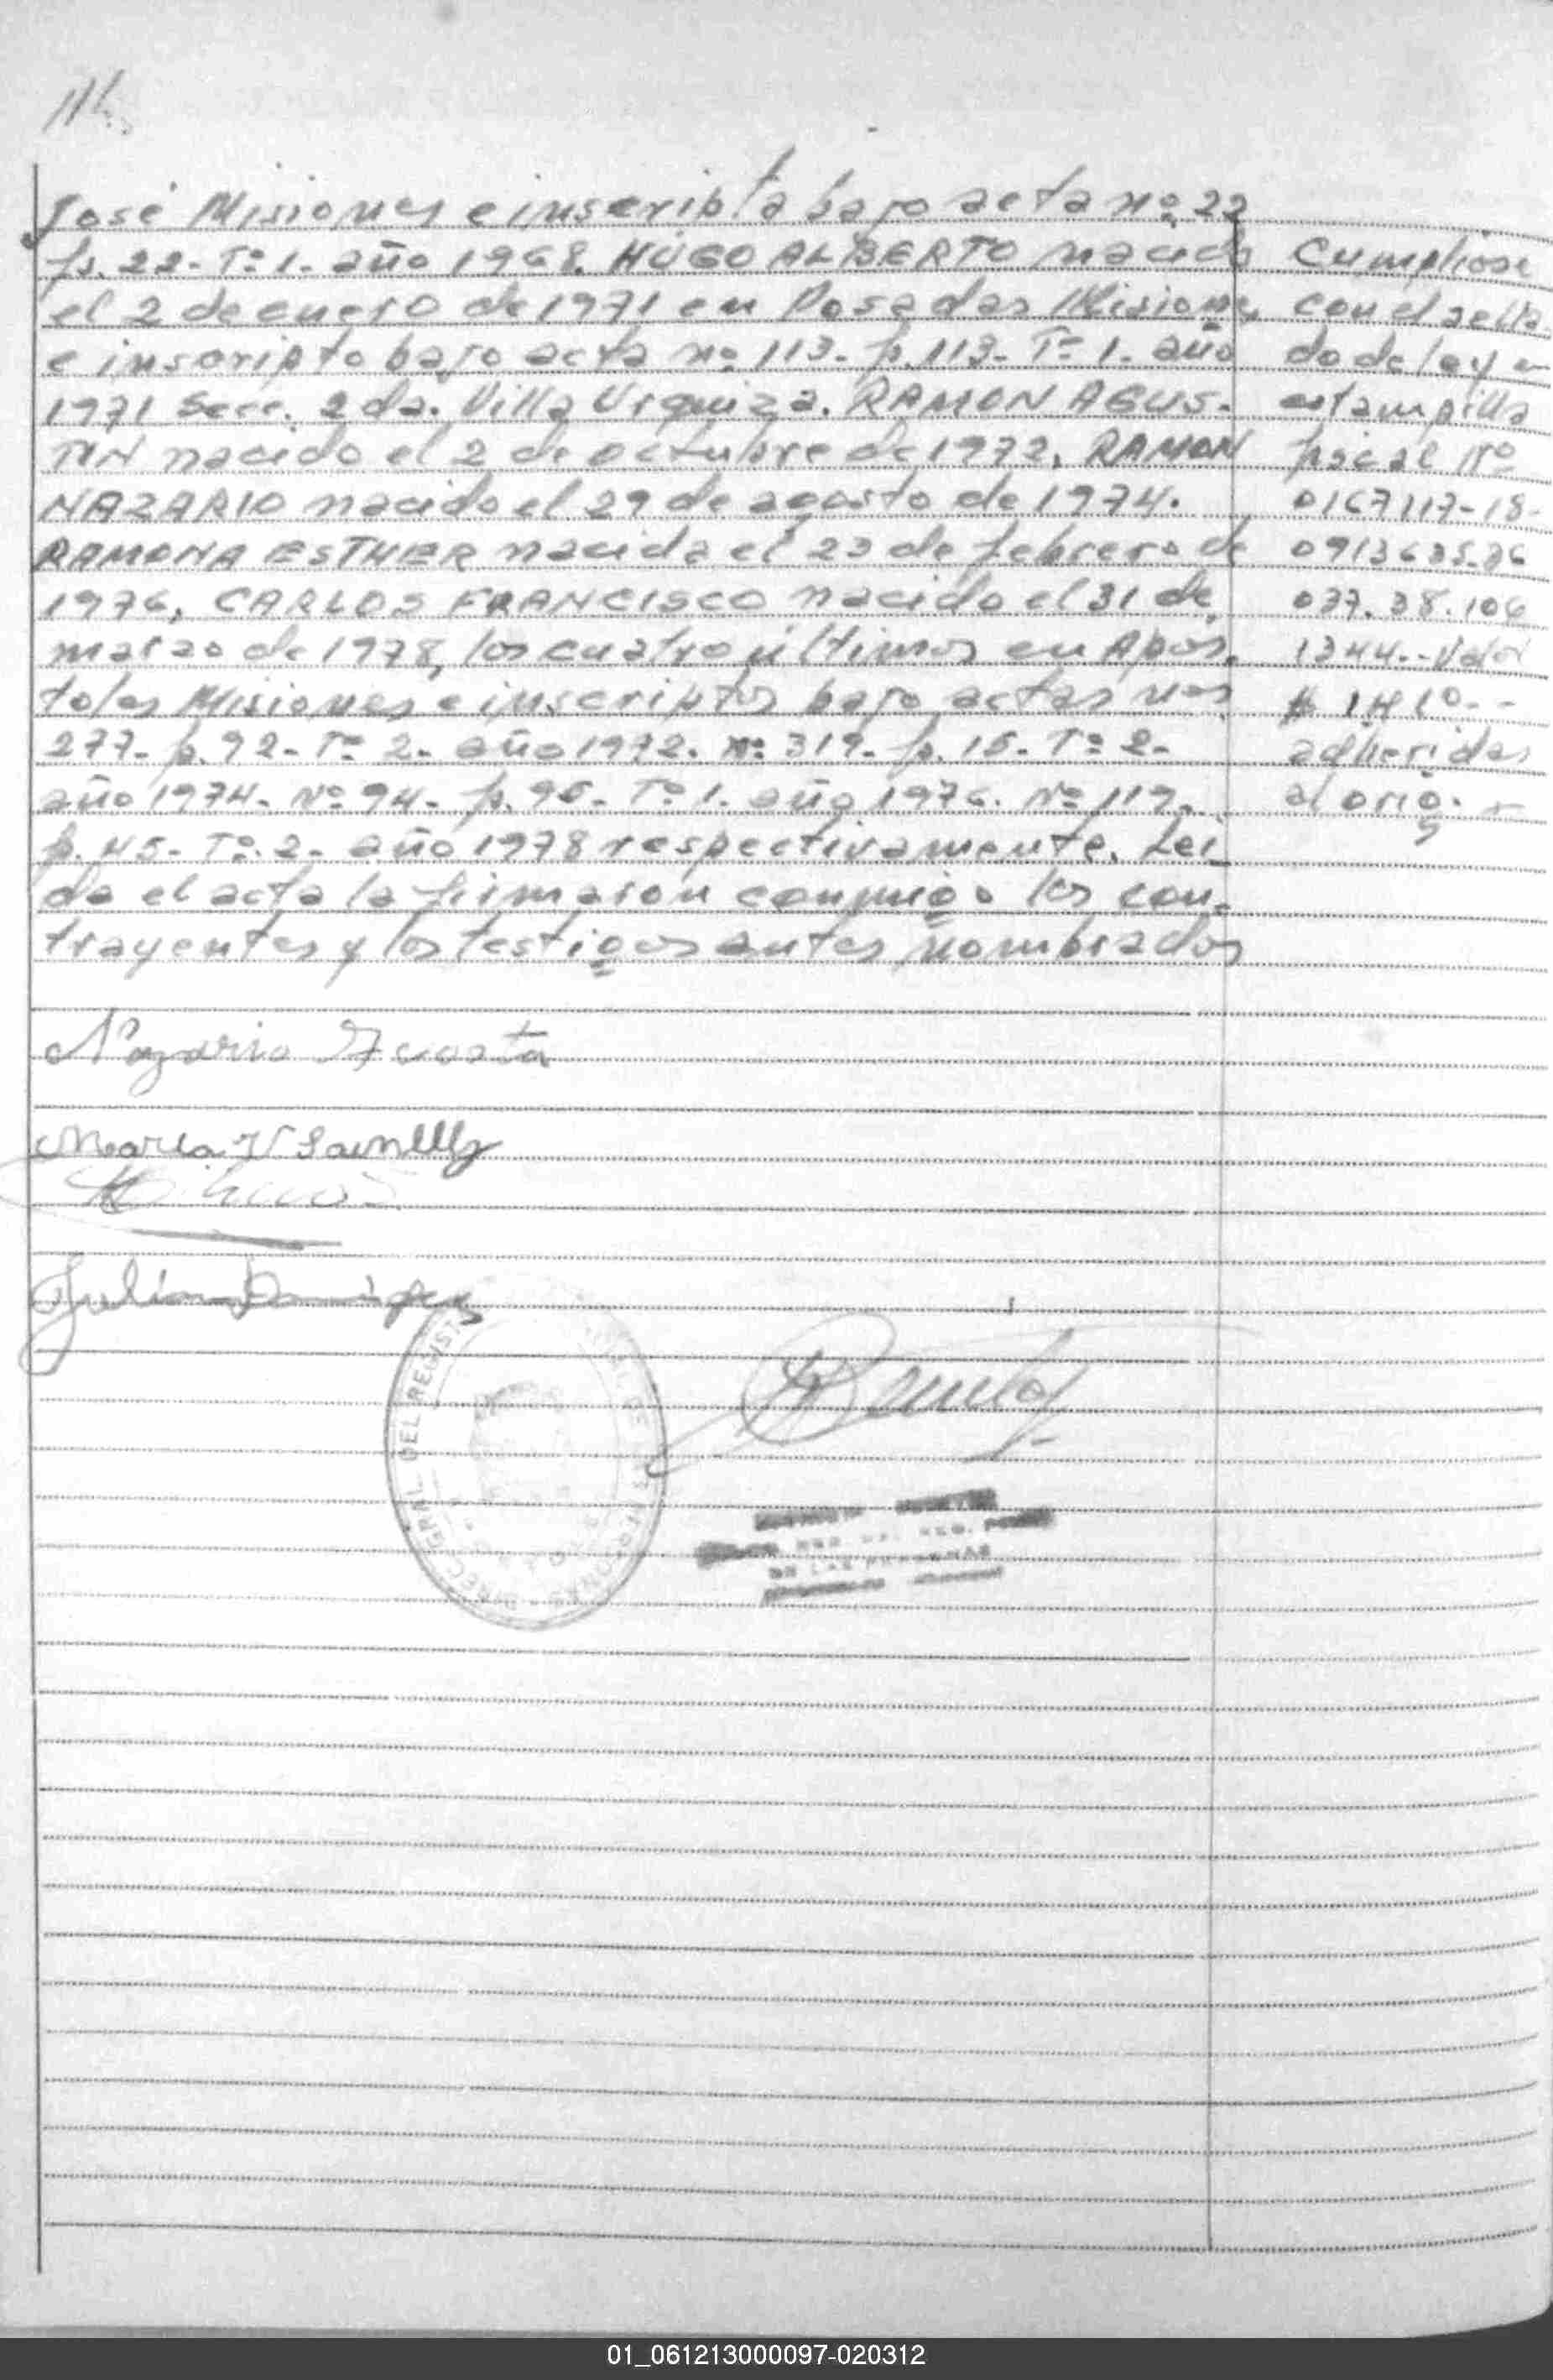 José Misiones e inscripta bajo acta nº 22
fs. 22- Tº 1- año 1968. HUGO ALBERTO nacido
el 2 de enero de 1971 en Posadas Misiones
e inscripto bajo acta nº 113- f. 113- Tº 1. año
1971 Secc. 2da. Villa Urquiza. RAMON AGUS-
TIN nacido el 2 de octubre de 1972, RAMON
NAZARIO nacido el 29 de agosto de 1974.
RAMONA ESTHER nacida el 23 de febrero de
1976, CARLOS FRANCISCO nacido el 31 de
marzo de 1978, los cuatro últimos en Após-
toles Misiones e inscriptos bajo actas nos
277- f. 92- Tº 2- año 1972. nº 319- f. 15- Tº 2-
año 1974- Nº 94- f. 95- Tº 1. año 1976. Nº 119.
f. 45- Tº 2- año 1978 respectivamente. Leí-
da el acta la firmaron conmigo los con-
trayentes y los testigos antes nombrados
Cumplióse
con el sella-
do de ley en
estampilla
fiscal Nº
0167117-18-
0913635-36
037.38.106
1344.- Valor
$ 1410--
adheridas
al orig.
Nazario Acosta
Maria V
Julian
DEL REGIST
DE LAS PERSONAS
01_061213000097-020312